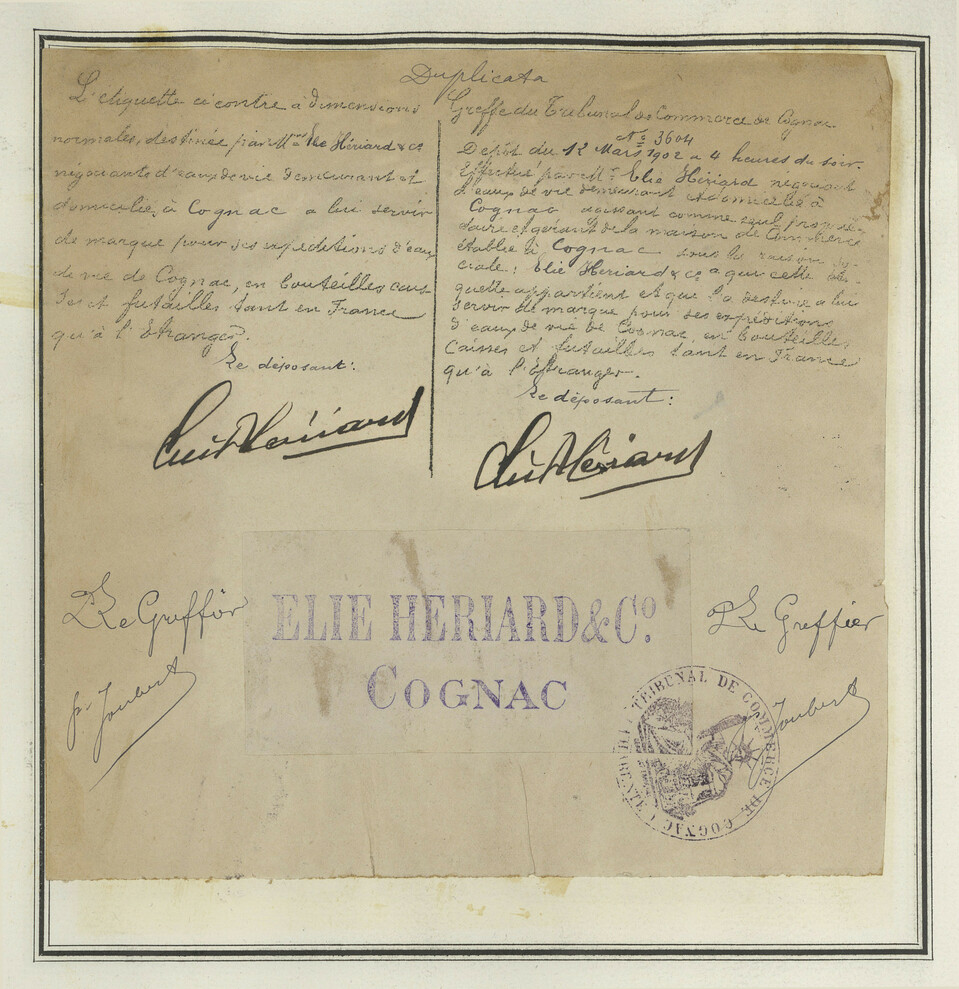 Duplicata
L'étiquette ci contre à dimensions
normales, destinée par Mr Elie Hériard & Co
négociants d'eaux de vie demeurant et
domicilié, à Cognac a lui servir
de marque pour ses expéditions d'eaux
de vie de Cognac, en bouteilles, cais-
ses et futailles tant en France
qu'à l'Etranger.
Le déposant:
Elie Hériard
Greffe du Tribunal de Commerce de Cognac
No 3604
Dépôt du 12 Mars 1902 à 4 heures du soir.
Effectué par Mr Elie Hériard négociant
d'eaux de vie demeurant et domicilié à
Cognac agissant comme seul proprié-
taire et gérant de la maison de Commerce
établie à Cognac sous la raison so-
ciale: Elie Hériard & Co à qui cette éti-
quette appartient et que l'a destinée a lui
servir de marque pour ses expéditions
d'eaux de vie de Cognac, en bouteilles,
caisses et futailles tant en France
qu'à l'Étranger.
Le déposant:
Elie Hériard
Le Greffier
p. Joubert
ELIE HERIARD & Co.
COGNAC
Le Greffier
Joubert
TRIBUNAL DE COMMERCE DE COGNAC